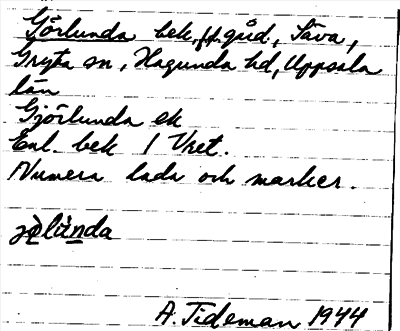 Görlunda bek, f.d. gård, Säva,
Gryta sn, Hagunda hd, Uppsala
län
Gjörlunda ek
Enl. bek 1 Vret.
Numera lada och marker.
A. Tideman 1944